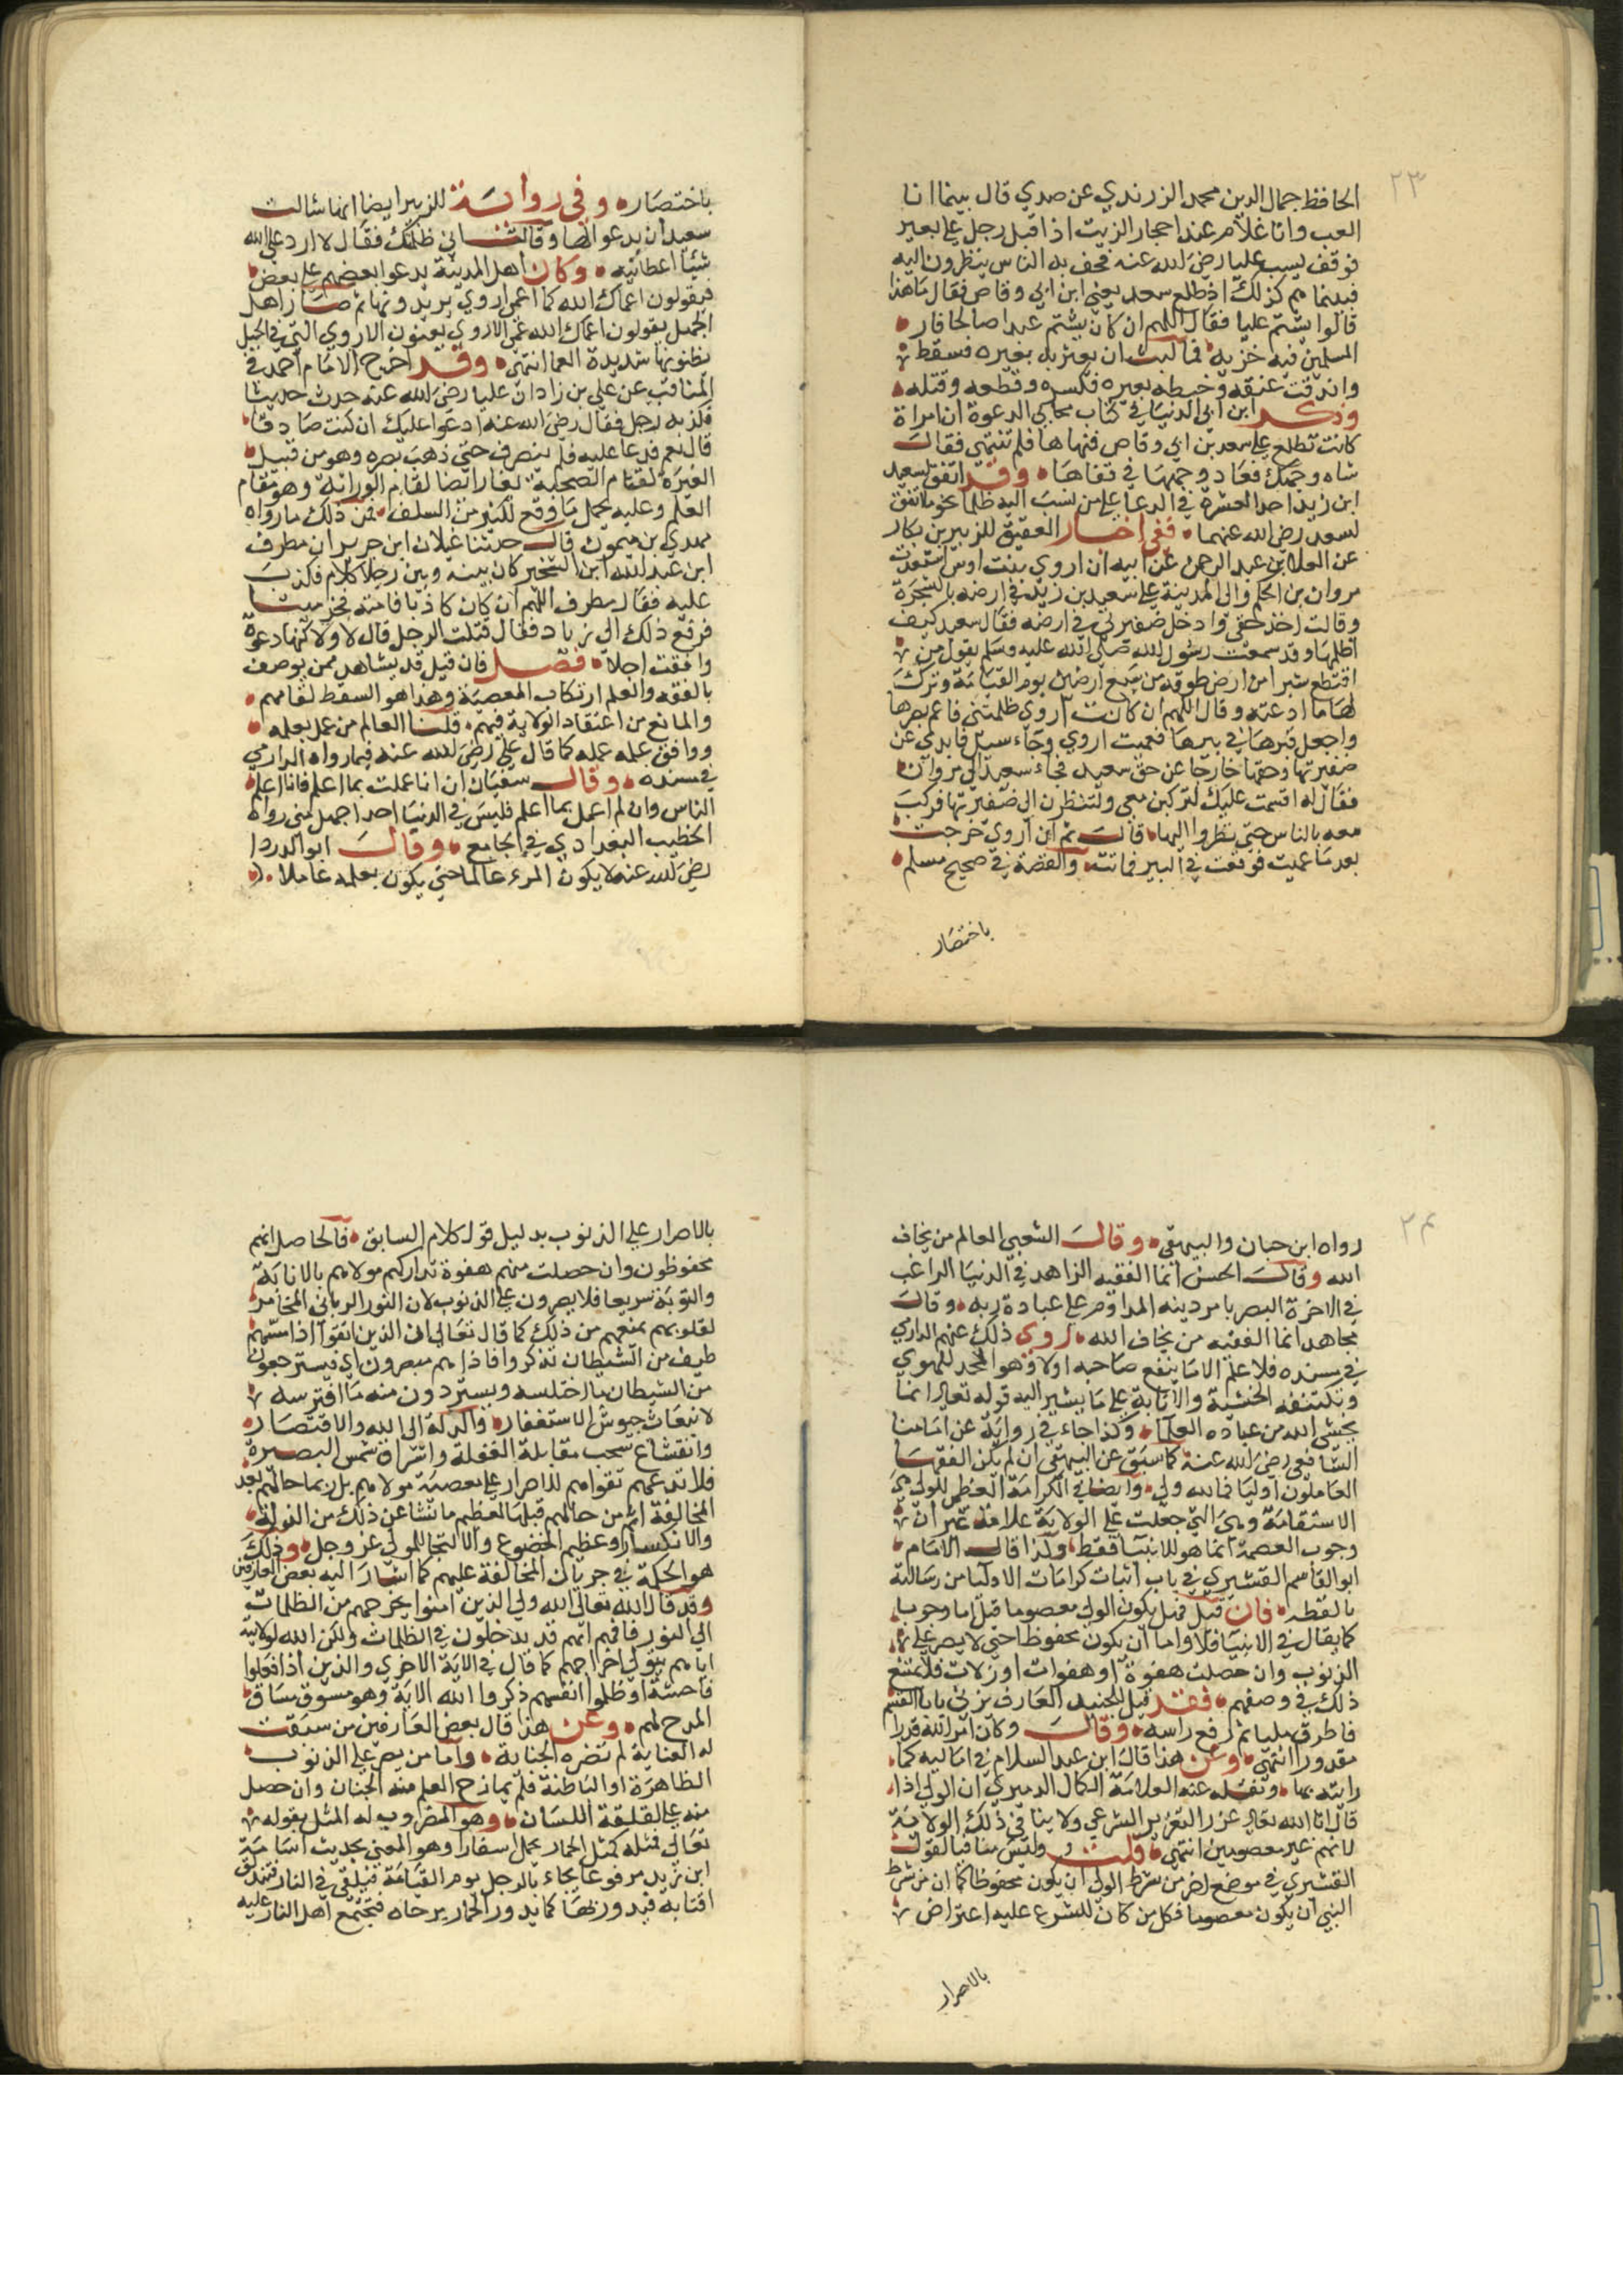 ٢٣
الحافظ جمال الدين محمد الزرندي عن صدي قال بينما انا
العب وانا غلام عند احجار الزيت اذ اقبل رجل على بعير
فوقف يسب عليا رضي الله عنه فحف به الناس ينظرون اليه
فبينما هم كذلك اذ طلع سعد يعني ابن ابي وقاص فقال ما هذا
قالوا يشتم عليا فقال اللهم ان كان يشتم عبدا صالحا فار
المسلمين فيه خزيه فما لبث ان يعثر به بعيره فسقط
واندقت عنقه وخبطه بعيره فكسره وقطعه وقتله
وذكر ابن ابي الدنيا في كتاب مجابي الدعوة ان امراة
كانت تطلع على سعد بن ابي وقاص فنهاها فلم تنتهي فقالت
شاه وجهك فعاد وجهها في قفاها وقد اتفق لسعيد
ابن زيد احد العشرة في الدعا على من نسب اليه ظلما نحو ما اتفق
لسعد رضي الله عنهما ففي اخبار العقيق للزبير بن بكار
عن العلا بن عبد الرحمن عن ابيه ان اروي بنت اوس استعدت
مروان بن الحكم والى المدينة على سعيد بن زيد في ارضه بالشجرة
وقالت اخذ حقي وادخل ضفيرتي في ارضه فقال سعيد كيف
اظلمها وقد سمعت رسول الله صلى الله عليه وسلم يقول من
اقتطع شبرا من ارض طوقه من سبع ارضين يوم القيامة وترك
لها ما ادعته وقال اللهم ان كانت اروي ظلمتني فاعم بصرها
واجعل قبرها في بيرها فعميت اروي وجاء سيل فابدي عن
ضفيرتها وحقها خارجا عن حق سعيد فجاء سعيد الي مروان
فقال له اقسمت عليك لتركبن معي ولتنظرن الي ضفيرتها فركب
معه بالناس حتي نظروا اليها قالت ثم ان اروي خرجت
بعد ما عميت فوقعت في البير فماتت والقصة في صحيح مسلم
باختصار
باختصاره وفي رواية للزبير ايضا انها سالت
سعيد ان يدعو لها وقالت اني ظلمتك فقال لا ارد على الله
شيئا اعطانيه وكان اهل المدينة يدعوا بعضهم على بعض
فيقولون اعماك الله كما اعمى اروي يريدونها ثم صار اهل
الجهل يقولون اعماك الله عمى الاروي يعنون الاروي التي في الجبل
يظنونها شديدة العما انتهى وقد اخرج الامام احمد في
المناقب عن علي بن زادان عليا رضي الله عنه حدث حديثا
فكذبه رجل فقال رضي الله عنه ادعوا عليك ان كنت صادقا
قال نعم فدعا عليه فلم ينصرف حتي ذهب بصره وهو من قبيل
الغيرة لمقام الصحابة يغار ايضا لمقام الوراثة وهو مقام
العلم وعليه يحمل ما وقع لكثير من السلف فمن ذلك ما رواه
مهدي بن ميمون قال حدثنا غيلان ابن جرير ان مطرف
ابن عبد الله ابن الشخير كان بينه وبين رجل كلام فكذب
عليه فقال مطرف اللهم ان كان كاذبا فامته فخر ميتا
فرفع ذلك الي زياد فقال قتلت الرجل قال لا ولكنها دعوة
وافقت اجلا فصل فان قيل قد يشاهد ممن يوصف
بالفقه والعلم ارتكاب المعصية وهذا هو السقط لمقامهم
والمانع من اعتقاد الولاية فيهم قلنا العالم من عمل بعلمه
ووافق علمه عمله كما قال علي رضي الله عنه فيما رواه الدارمي
في مسنده وقال سفيان ان انا عملت بما اعلم فانا اعلم
الناس وان لم اعمل بما اعلم فليس في الدنيا احد اجهل مني رواه
الخطيب البغدادي في الجامع وقال ابو الدردا
رضي الله عنه لا يكون المرء عالما حتي يكون بعلمه عاملا
٢٤
رواه ابن حبان والبيهقي وقال الشعبي العالم من يخاف
الله وقال الحسن انما الفقيه الزاهد في الدنيا الراغب
في الاخرة البصير بامر دينه المداوم على عبادة ربه وقال
مجاهد انما الفقيه من يخاف الله روي ذلك عنهم الدارمي
في مسنده فلا علم الا ما ينفع صاحبه اولا وهو
وتكتنفه الخشية والانابة على ما يشير اليه قوله تعالى انما
يخشى الله من عباده العلما وكذا جاء في رواية عن امامنا
الشافعي رضي الله عنه كما سبق عن البيهقي ان لم يكن الفقها
العاملون اوليا فما لله ولي وايضا في الكرامة العظمي للولي هي
الاستقامة وهي التي جعلت على الولاية علامة غير ان
وجوب العصمة انما هو للانبيا فقط ولذا قال الامام
ابو القاسم القشيري في باب اثبات كرامات الاوليا من رسالته
بالفظه فان قيل فهل يكون الولي معصوما قيل اما وجوبا
كما يقال في الانبيا فلا واما ان يكون محفوظا حتي لا يصر على
الذنوب وان حصلت هفوة او هفوات او زلات فلا يمتنع
ذلك في وصفهم فقد قيل للجنيد العارف يزني يا ابا القسم
فاطرق مليا ثم رفع راسه وقال وكان امر الله قدرا
مقدورا انتهي وعن هذا قال ابن عبد السلام في اماليه كما
رايته بها ونقله عنه العلامة الكمال الدميري ان الولي اذا
قال انا الله تعالى عزر التعزير الشرعي ولا ينافي ذلك الولاية
لانهم غير معصومين انتهى قلت وليس منافيا لقول
القشيري في موضع اخر من شرط الولي ان يكون محفوظا كما ان من شرط
النبي ان يكون معصوما فكل من كان للشرع عليه اعتراض
بالاصرار
بالاصرار علي الذنوب بدليل قوله كلام السابق فالحاصل انهم
محفوظون وان حصلت منهم هفوة تداركهم مولاهم بالانابة
والتوبة سريعا فلا يصرون علي الذنوب لان النور الرباني المخامر
لقلوبهم يمنعهم من ذلك كما قال تعالى ان الذين اتقوا اذا مسهم
طيف من الشيطان تذكروا فاذا هم مبصرون اي فيسترجعون
من الشيطان ما اختلسه ويستردون منه ما افترسه
لانبعاث جيوش الاستغفار والذلة الى الله والاقتصار
وانقشاع سحب مقابلة الغفلة واشراق شمس البصيرة
فلا تدعهم تقواهم للاصرار على معصية مولاهم بل ربما حالتهم بعد
المخالفة اتم من حالتهم قبلها لعظيم ما نشا عن ذلك من الذلة
والانكسار وعظيم الخضوع والالتجا للمولي عز وجل وذلك
هو الحكمة في جريان المخالفة عليهم كما اشار اليه بعض العارفين
وقد قال الله تعالى الله ولي الذين امنوا يخرجهم من الظلمات
الي النور فافهم انهم قد يدخلون في الظلمات ولكن الله لولايته
اياهم يتولي اخراجهم كما قال في الاية الاخري والذين اذا فعلوا
فاحشة او ظلموا انفسهم ذكروا الله الاية وهو مسوق مساق
المدح لهم وعن هذا قال بعض العارفين من سبقت
له العناية لم تضره الجناية واما من يصر على الذنوب
الظاهرة او الباطنة فلم يمازح العلم منه الجنان وان حصل
منه على لقلقة اللسان وهو المضروب له المثل بقوله
تعالى فمثله كمثل الحمار يحمل اسفارا وهو المعني بحديث اسامة
ابن زيد مرفوعا يجاء بالرجل يوم القيامة فيلقى في النار فتندلق
اقتابه فيدور بها كما يدور الحمار برحاه فتجتمع اهل النار عليه